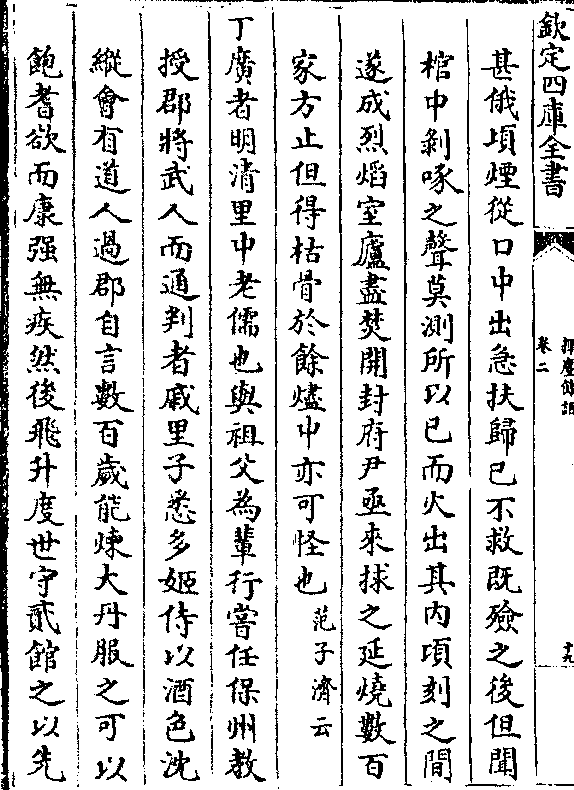 欽定四庫全書
揮麈餘話
卷二
十九
甚俄頃煙從口中出急扶歸已不救既殮之後但聞
棺中剝啄之聲莫測所以已而火出其内頃刻之間
遂成烈熖室廬盡焚開封府尹亟來捄之延燒數百
家方止但得枯骨於餘燼中亦可怪也范子濟云
丁廣者明清里中老儒也與祖父為輩行嘗任保州教
授郡將武人而通判者戚里子悉多姬侍以酒色沈
縱會有道人過郡自言數百歲能煉大丹服之可以
飽耆欲而康强無疾然後飛升度世守貳館之以先